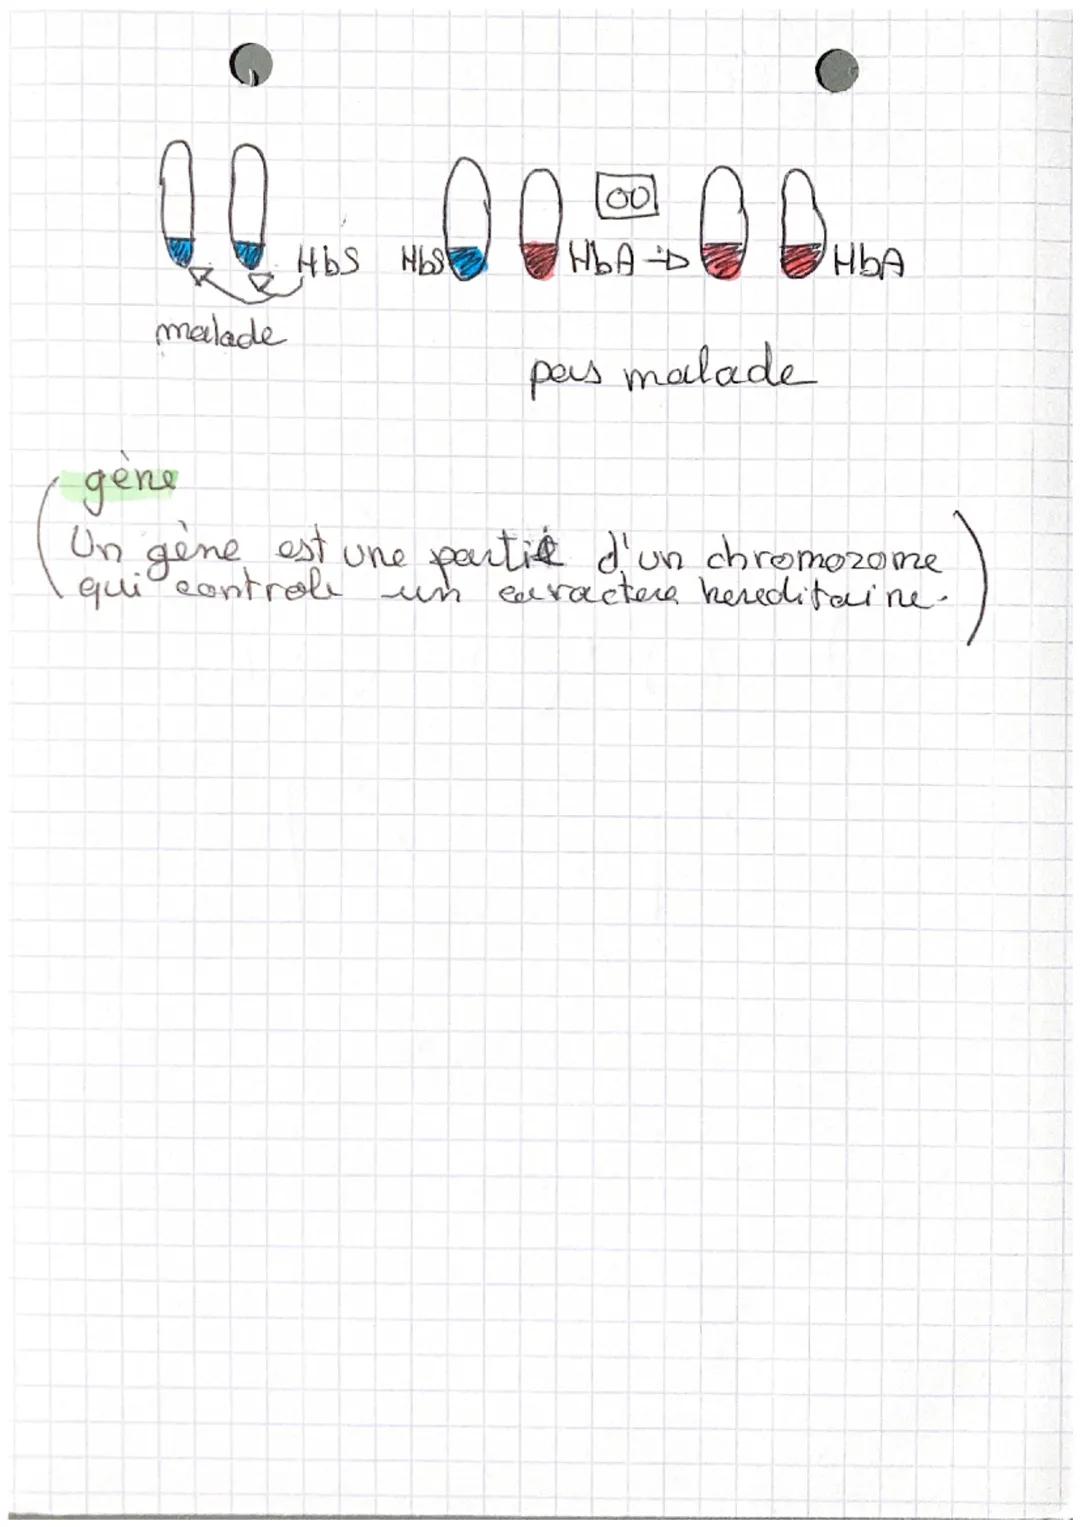 OO
HbS HbS HbA → HbA
malade
pas malade
gène
Un gène est une partie d'un chromozome
qui controle un caractere hereditaire.